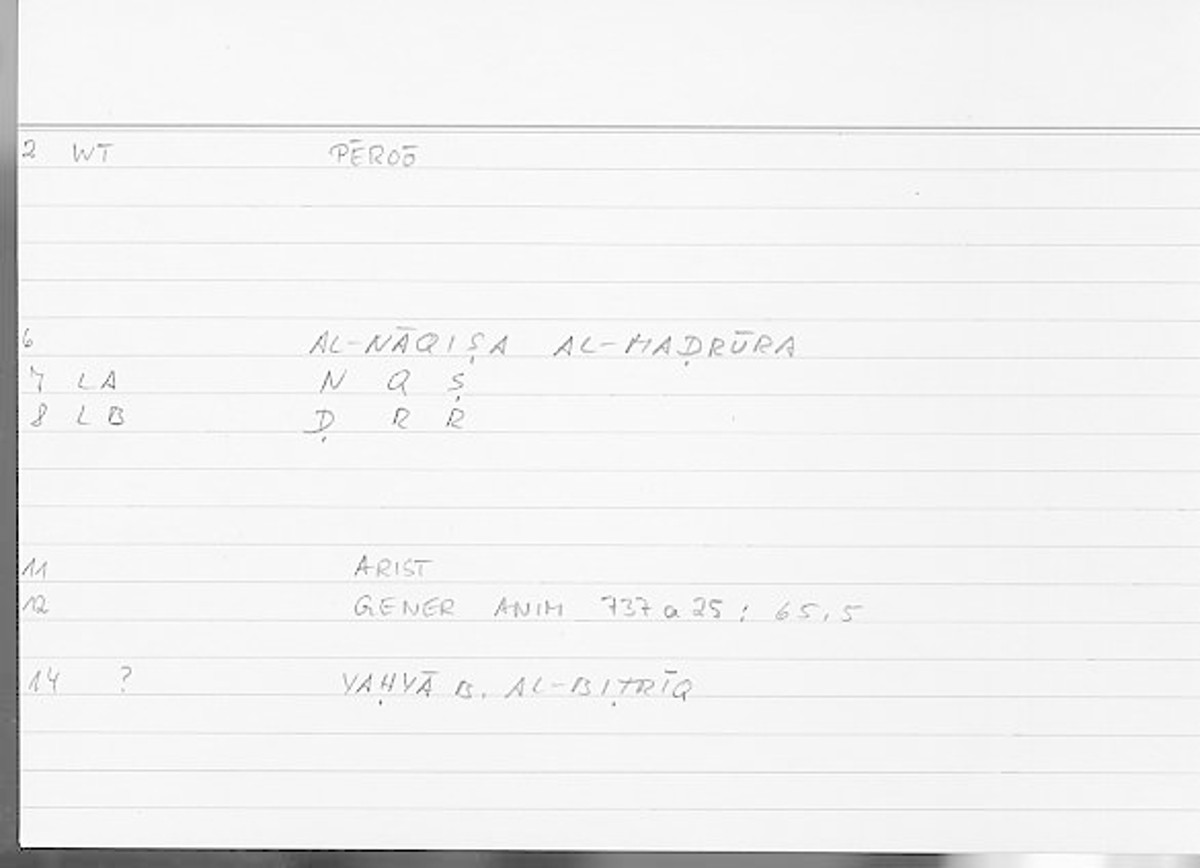 2 WT PĒROŌ
6 AL-NĀQIṢA AL-MAḌRŪRA
7 LA N Q Ṣ
8 LB Ḍ R R
11 ARIST
12 GENER ANIM 737 a 25 : 65,5
14 ? YAḤYĀ B. AL-BIṬRĪQ